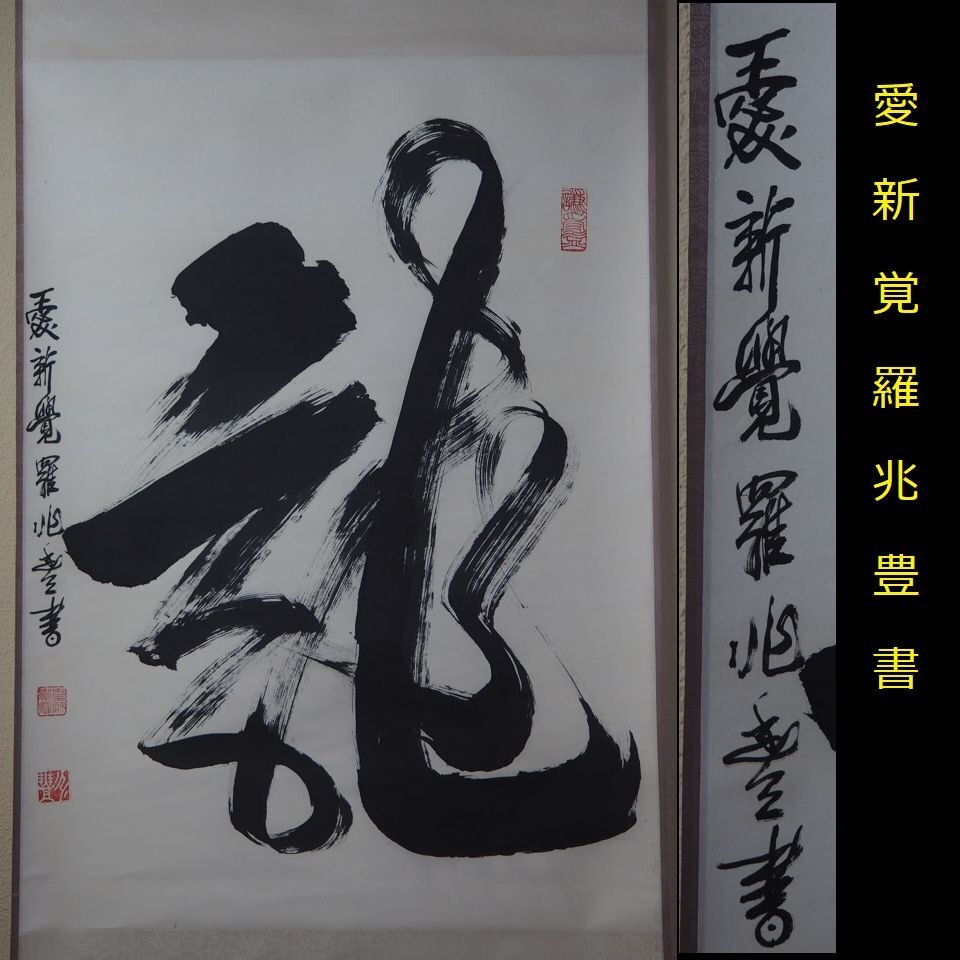 龍
愛新覺羅兆豐書
愛新覺羅兆豐書
愛新覚羅兆豊書